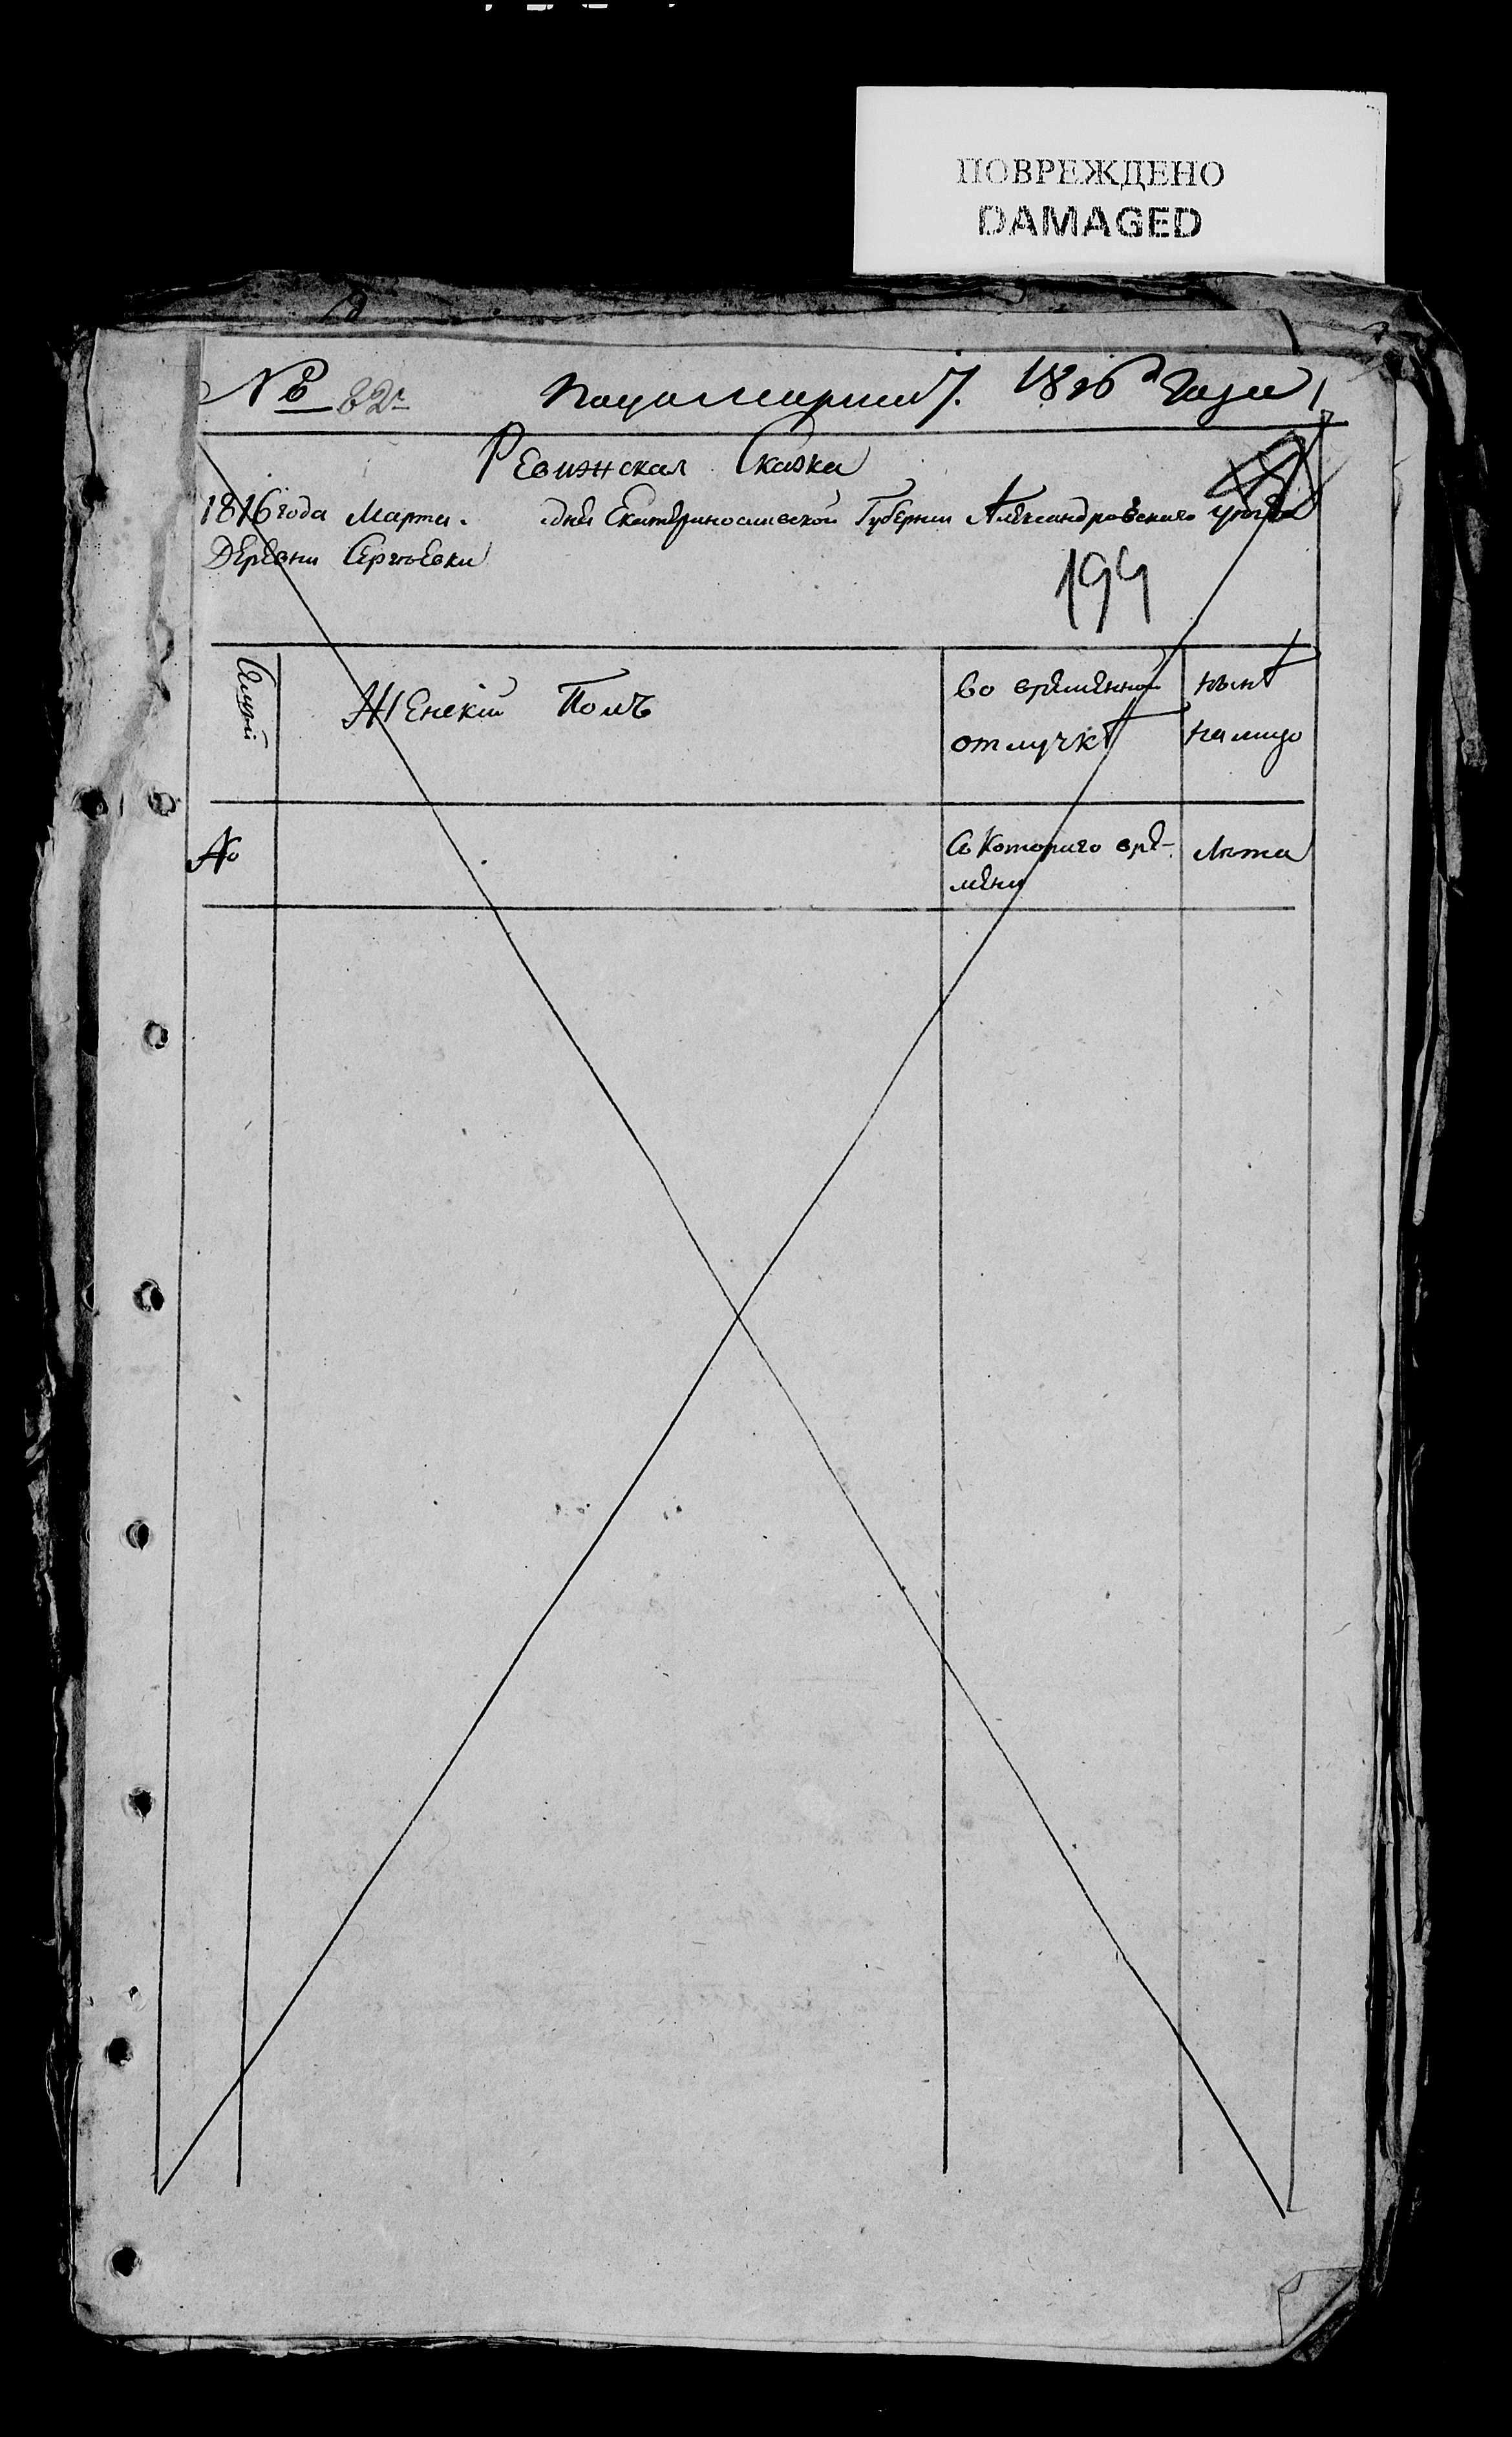 ПОВРЕЖДЕНО
DAMAGED
№ 82
1816 Года
Ревижская Сказка
1816 года Марта. дня Екатеринославской Губернии Александровского уезда
Деревни Сергѣевки
199
Женскій Полъ
во временной отлучкѣ
нынѣ на лицо
№
Съ Которого вре-
мени
Лѣта